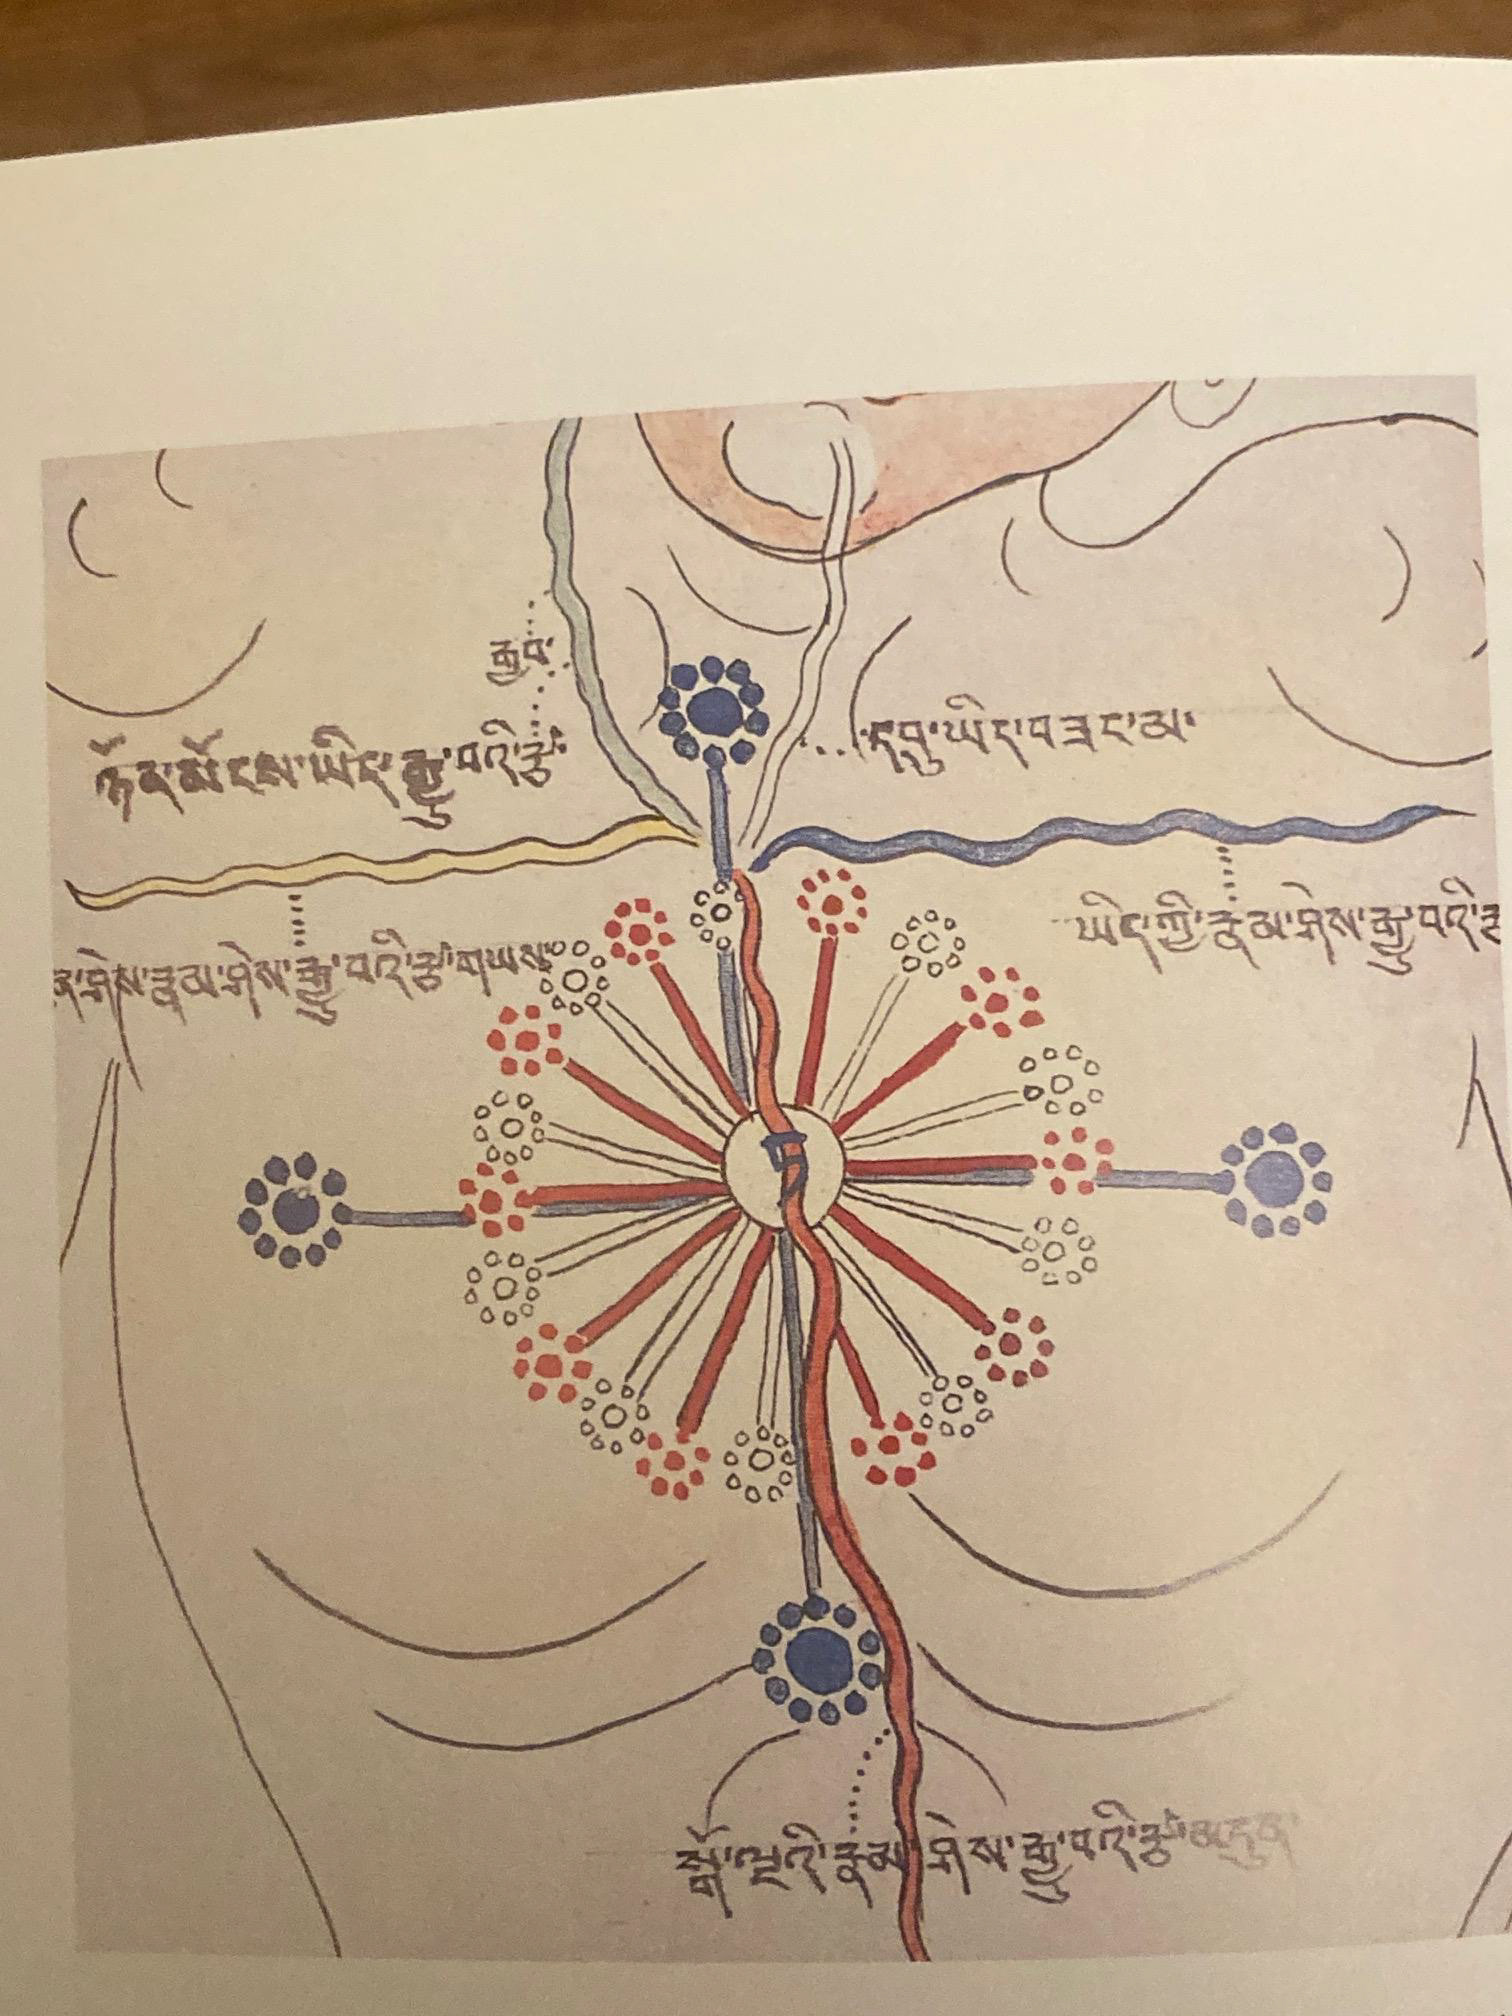 རྒྱབ་
ཉོན་མོངས་ཡིད་རྒྱུ་བའི་རྩ་
དབུ་ཡིད་བཟང་མ་
ཡིད་ཀྱི་རྣམ་ཤེས་རྒྱུ་བའི་
ཤེས་རྣམ་ཤེས་རྒྱུ་བའི་རྩ་གཡས་
སྒོ་ལྔའི་རྣམ་ཤེས་རྒྱུ་བའི་རྩ་མདུན་